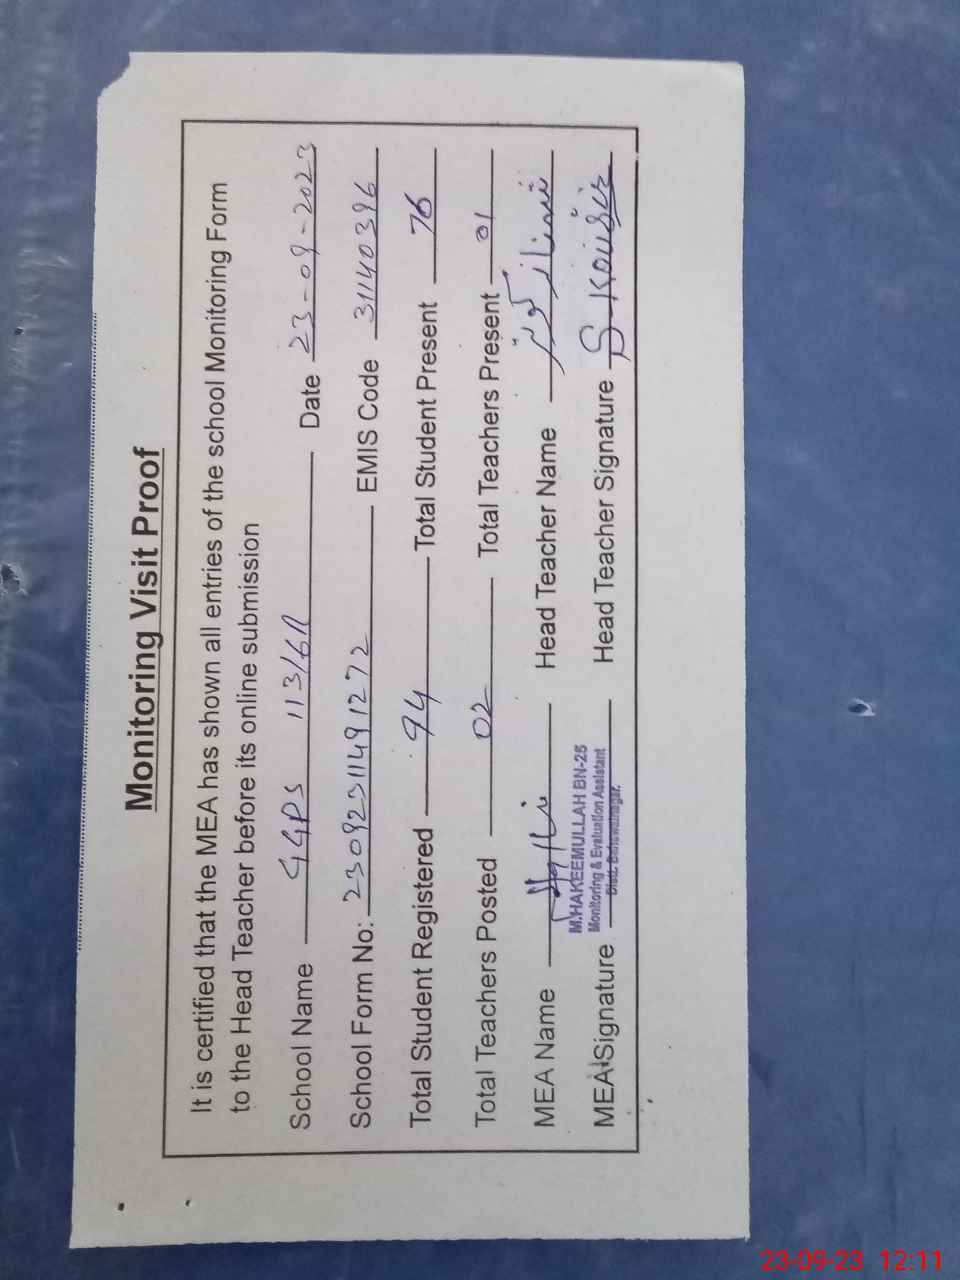 Monitoring Visit Proof
It is certified that the MEA has shown all entries of the school Monitoring Form
to the Head Teacher before its online submission
School Name GGPS 113/6R Date 23-09-2023
School Form No: 23092311491272 EMIS Code 31140396
Total Student Registered 94 Total Student Present 76
Total Teachers Posted 02 Total Teachers Present 01
MEA Name Head Teacher Name شہناز کوثر
M.HAKEEMULLAH BN-25
Monitoring & Evaluation Assistant
Distt. Bahawalnagar.
MEA Signature Head Teacher Signature S. Kousir
23-09-23 12:11